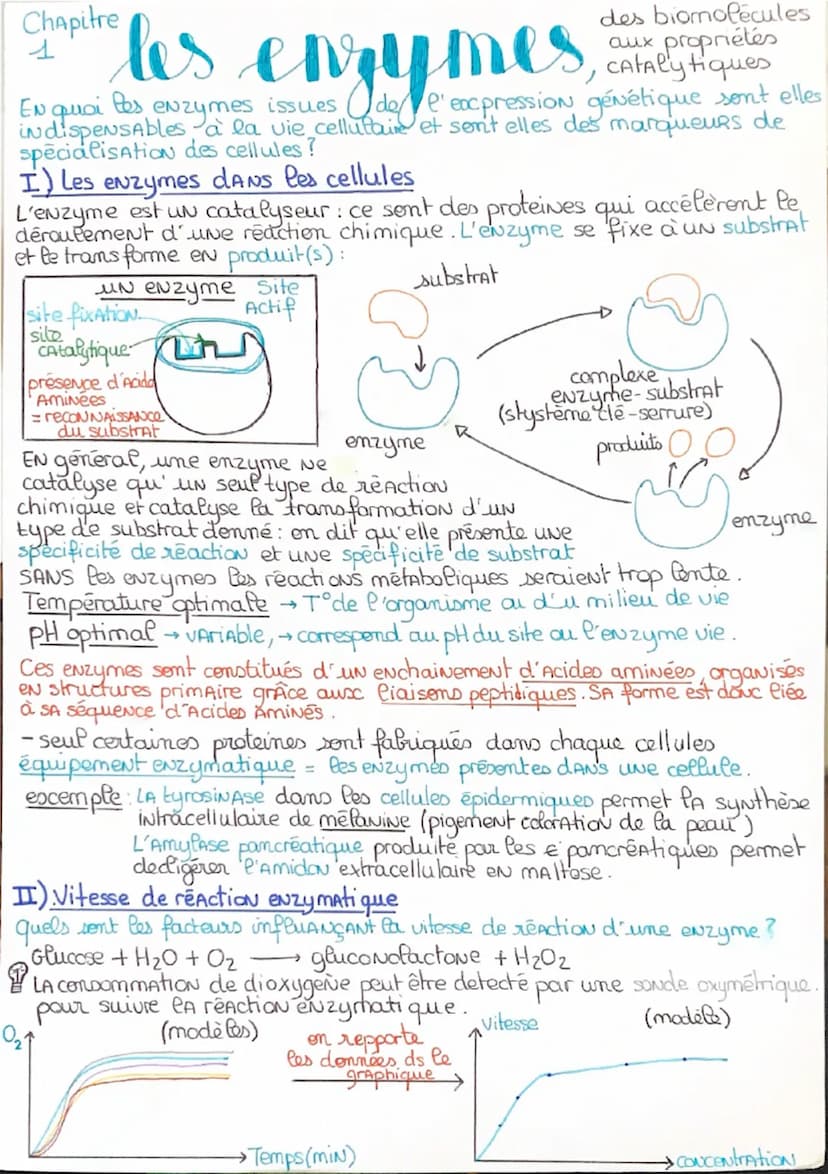 Chapitre
1
les enzymes,
des biomolécules
aux propriétés
catalytiques
En quoi les enzymes issues de l'expression génétique sont elles
indispensables à la vie cellulaire et sont elles des marqueurs de
spécialisation des cellules ?
I) Les enzymes dans les cellules
L'enzyme est un catalyseur : ce sont des proteines qui accélèrent le
déroulement d'une réaction chimique. L'enzyme se fixe à un substrat
et le transforme en produit(s) :
un enzyme
Site
Actif
site fixation
site
catalytique
présence d'Acide
Aminées
= reconnaissance
du substrat
substrat
enzyme
complexe
enzyme-substrat
(stystème clé-serrure)
produits
enzyme
En général, une enzyme ne
catalyse qu'un seul type de réaction
chimique et catalyse la transformation d'un
type de substrat donné : on dit qu'elle présente une
spécificité de réaction et une spécificité de substrat
Sans les enzymes les réactions métaboliques seraient trop lente.
Température optimale → T° de l'organisme ou d'u milieu de vie
pH optimal → variable, → correspond au pH du site ou l'enzyme vie.
Ces enzymes sont constitués d'un enchainement d'Acides aminées, organisés
en structures primaire grâce aux liaisons peptitiques. Sa forme est donc liée
à sa séquence d'Acides Aminés.
- seul certaines proteines sont fabriqués dans chaque cellules
équipement enzymatique = les enzymes présentes dans une cellule.
exemple : La tyrosinase dans les cellules épidermiques permet la synthèse
intracellulaire de mélanine (pigement coloration de la peau)
L'Amylase pancréatique produite par les pancréatiques permet
dedigérer l'Amidon extracellulaire en maltose.
II) Vitesse de réaction enzymatique
Quels sont les facteurs influançant la vitesse de réaction d'une enzyme ?
Glucose + H2O + O2 → gluconolactone + H2O2
La consommation de dioxygène peut être detecté par une sonde oxymétrique.
pour suivre la réaction enzymatique.
O2
(modèles)
Temps (min)
on repporte
les données ds le
graphique
Vitesse
(modèle)
concentration